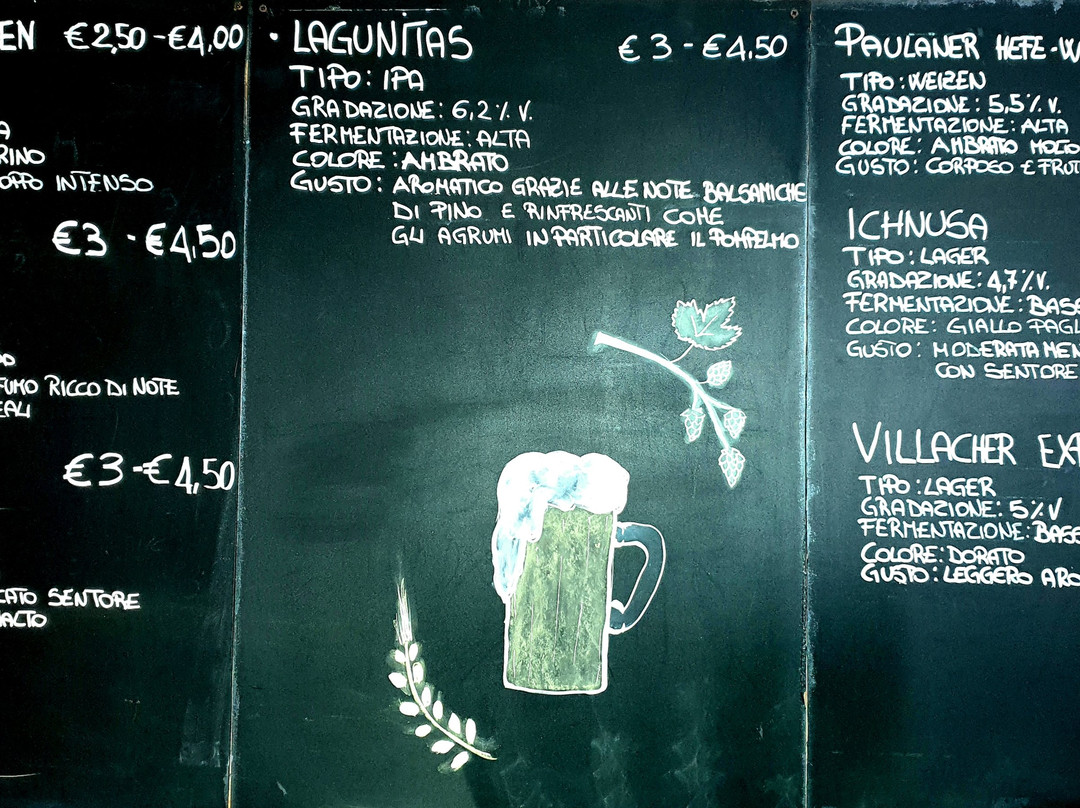 EN €2,50-€4,00
A
RINO
OPPO INTENSO
€3 - €4,50
DO
FUMO RICCO DI NOTE
EALI
€3-€4,50
CATO SENTORE
MALTO
• LAGUNITAS €3-€4,50
TIPO: IPA
GRADAZIONE: 6,2% V.
FERMENTAZIONE: ALTA
COLORE: AMBRATO
GUSTO: AROMATICO GRAZIE ALLE NOTE BALSAMICHE
DI PINO E RINFRESCANTI COME
GLI AGRUMI IN PARTICOLARE IL POMPELMO
PAULANER HEFE-W
TIPO: WEIZEN
GRADAZIONE: 5,5% V.
FERMENTAZIONE: ALTA
COLORE: AMBRATO MOLTO
GUSTO: CORPOSO E FRUT
ICHNUSA
TIPO: LAGER
GRADAZIONE: 4,7% V.
FERMENTAZIONE: BASS
COLORE: GIALLO PAGL
GUSTO: MODERATAMEN
CON SENTORE
VILLACHER EX
TIPO: LAGER
GRADAZIONE: 5% V
FERMENTAZIONE: BASS
COLORE: DORATO
GUSTO: LEGGERO ARO